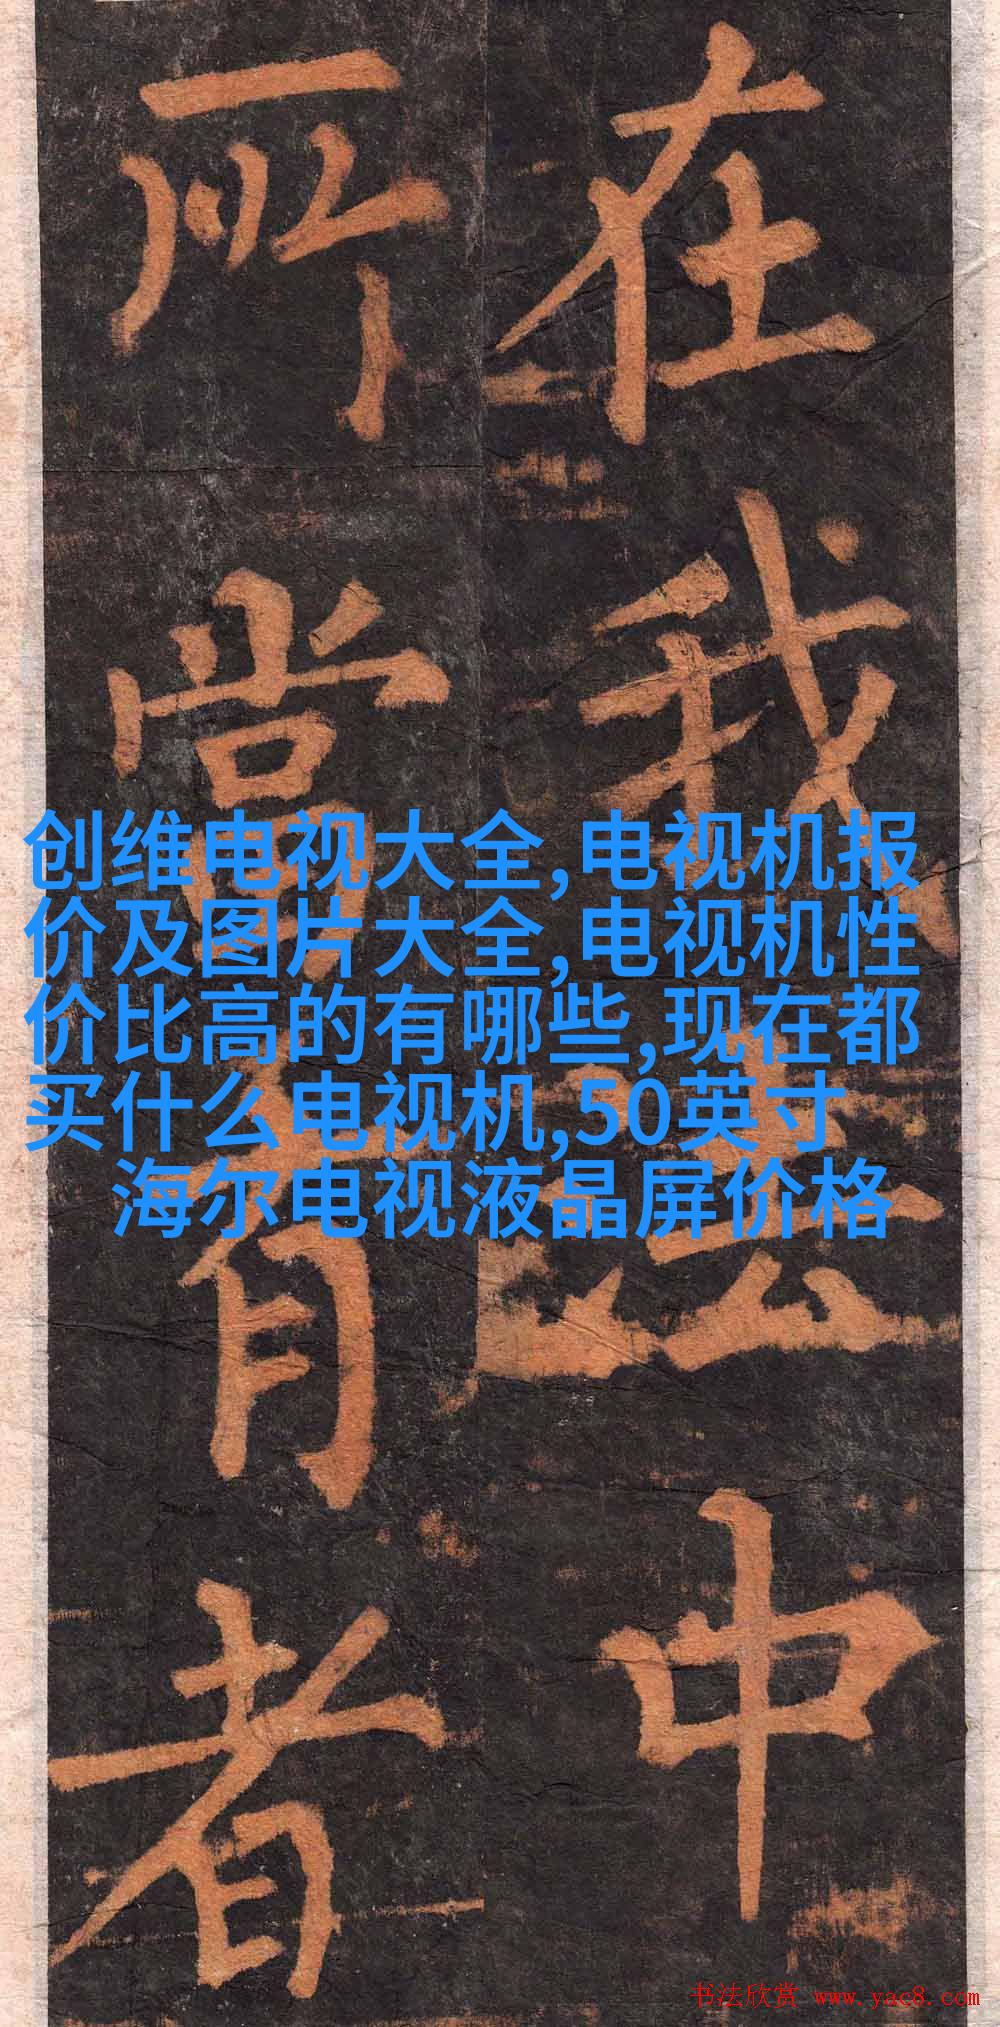 在我法中
所當有者
创维电视大全,电视机报
价及图片大全,电视机性
价比高的有哪些,现在都
买什么电视机,50英寸
海尔电视液晶屏价格
书法欣赏 www.yac8.com